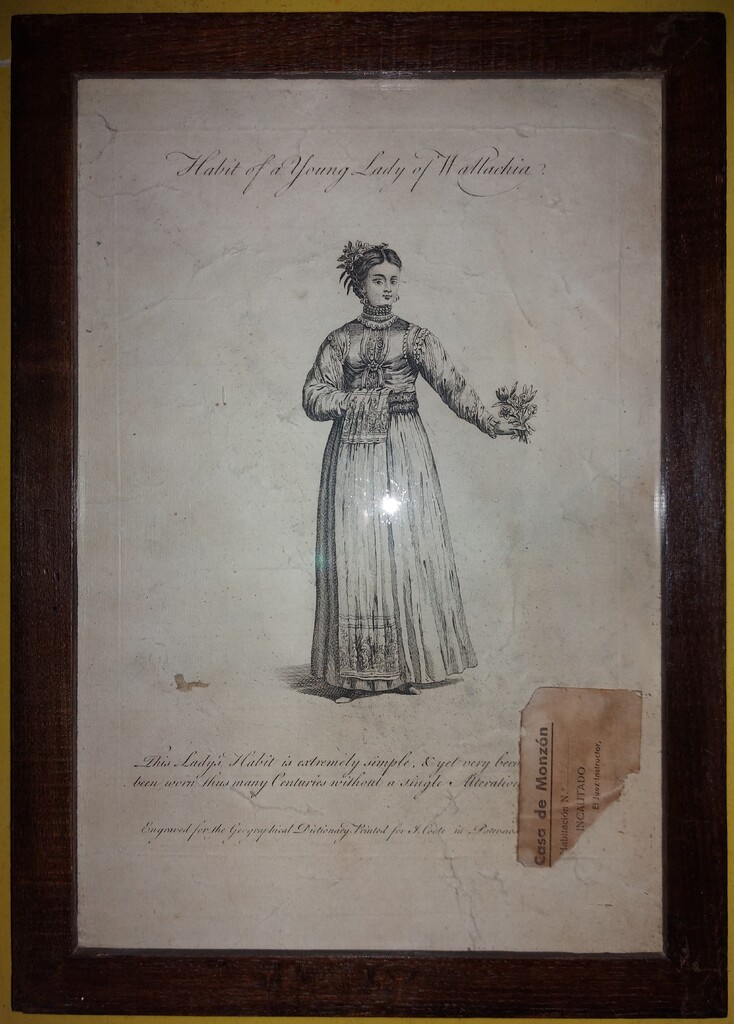 Habit of a Young Lady of Wallachia.
This Lady's Habit is extremely simple, & yet very
been worn thus many Centuries without a single Alteration
Engraved for the Geographical Dictionary Printed for J. Coote in
Casa de Monzón
Habitación N.º
INCAUTADO
El Juez Instructor,